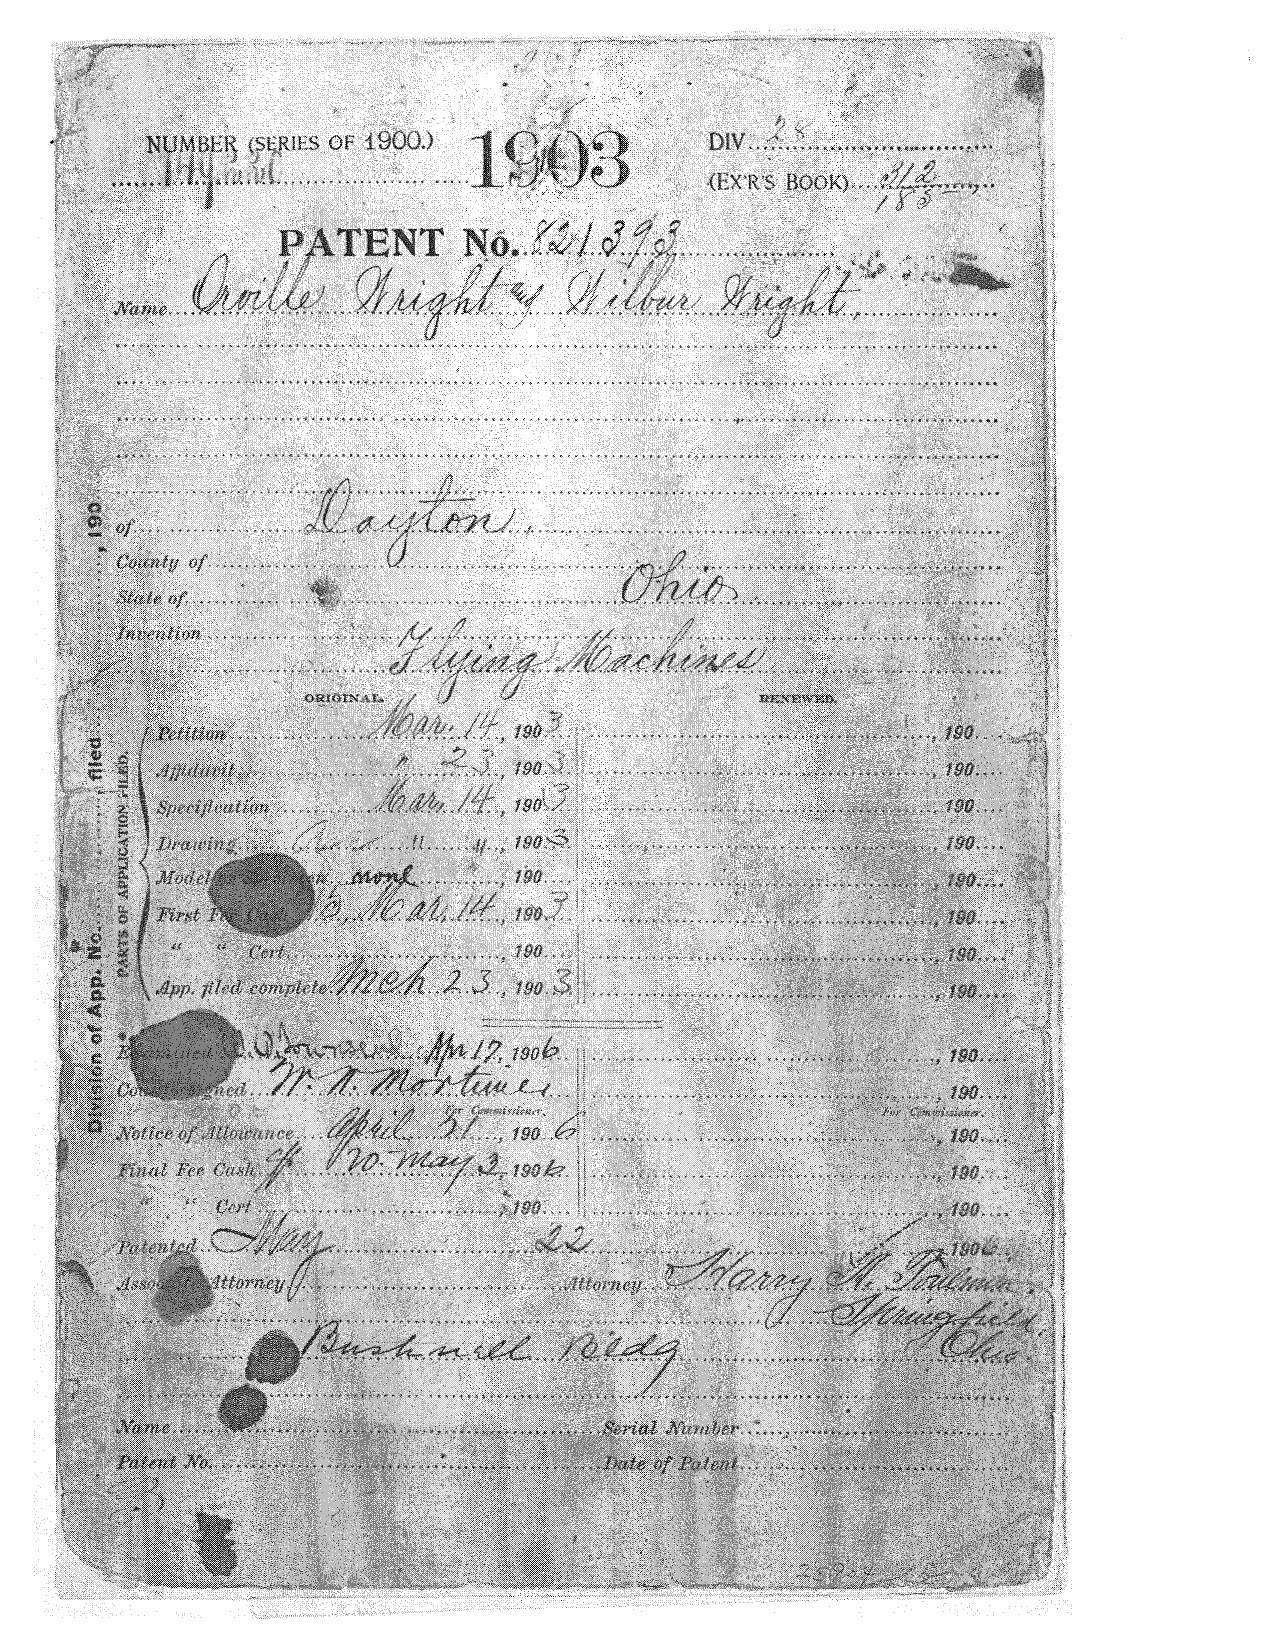 NUMBER (SERIES OF 1900.)
1903
DIV. 28
(EX'R'S BOOK) 312
183
PATENT No. 821393
Name Orville Wright and Wilbur Wright,
of Dayton,
County of
State of Ohio
Invention
Flying Machines
ORIGINAL. RENEWED.
Petition Mar. 14, 1903 , 190
Affidavit " 23, 1903 , 190
Specification Mar. 14, 1903 , 190
Drawing " ", 1903 , 190
Model none , 190 , 190
First Fee Cash Mar. 14, 1903 , 190
" " Cert. , 190 , 190
App. filed complete Mch 23, 1903 , 190
PARTS OF APPLICATION FILED.
Division of App. No. , filed , 190
Examined Apr 17, 1906 , 190
Countersigned W. N. Mortimer , 190
For Commissioner. For Commissioner.
Notice of Allowance April , 1906 , 190
Final Fee Cash 20. May 3, 1906 , 190
" " Cert. , 190 , 190
Patented May 22 1906
Associate Attorney Attorney Harry A. Toulmin,
Springfield,
Ohio.
Bushnell Bldg
Name Serial Number
Patent No. Date of Patent